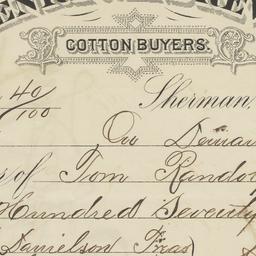 COTTON BUYERS.
40/100 Sherman,
On Deman
s of Tom Rando
Hundred Seventy
Danielson Treas)